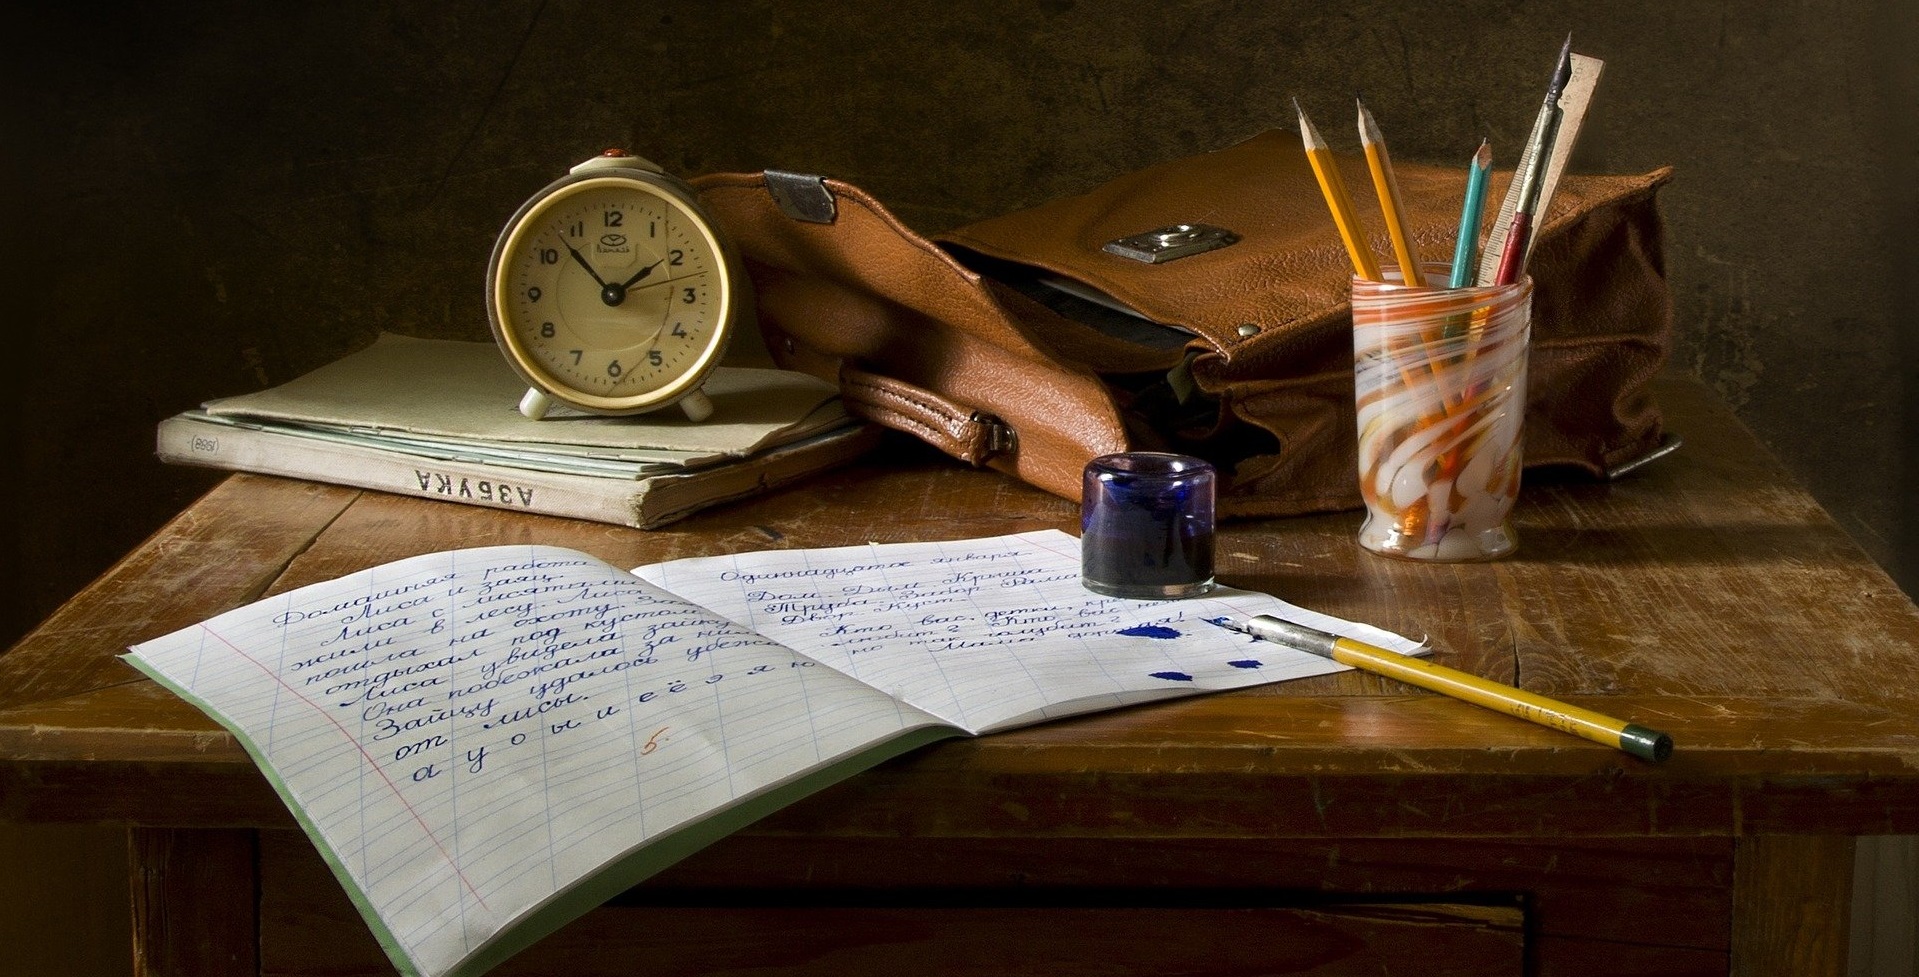 12
11
1
10
2
9
3
8
4
7
5
6
(1988)
АЗБУКА
Домашняя работа
Лиса и заяц.
Лиса с лисятами
жили в лесу. Лиса
пошла на охоту.
отдыхал под кустом.
Лиса увидела зайку.
Она побежала за ним.
Зайцу удалось
от лисы.
а у о ы и е ё э я ю
5.
Одиннадцатое января
Дом. Дым. Крыша. Рама.
Труба. Забор.
Двор. Куст.
Кто вас, детки,
любит? Кто вас
голубит?